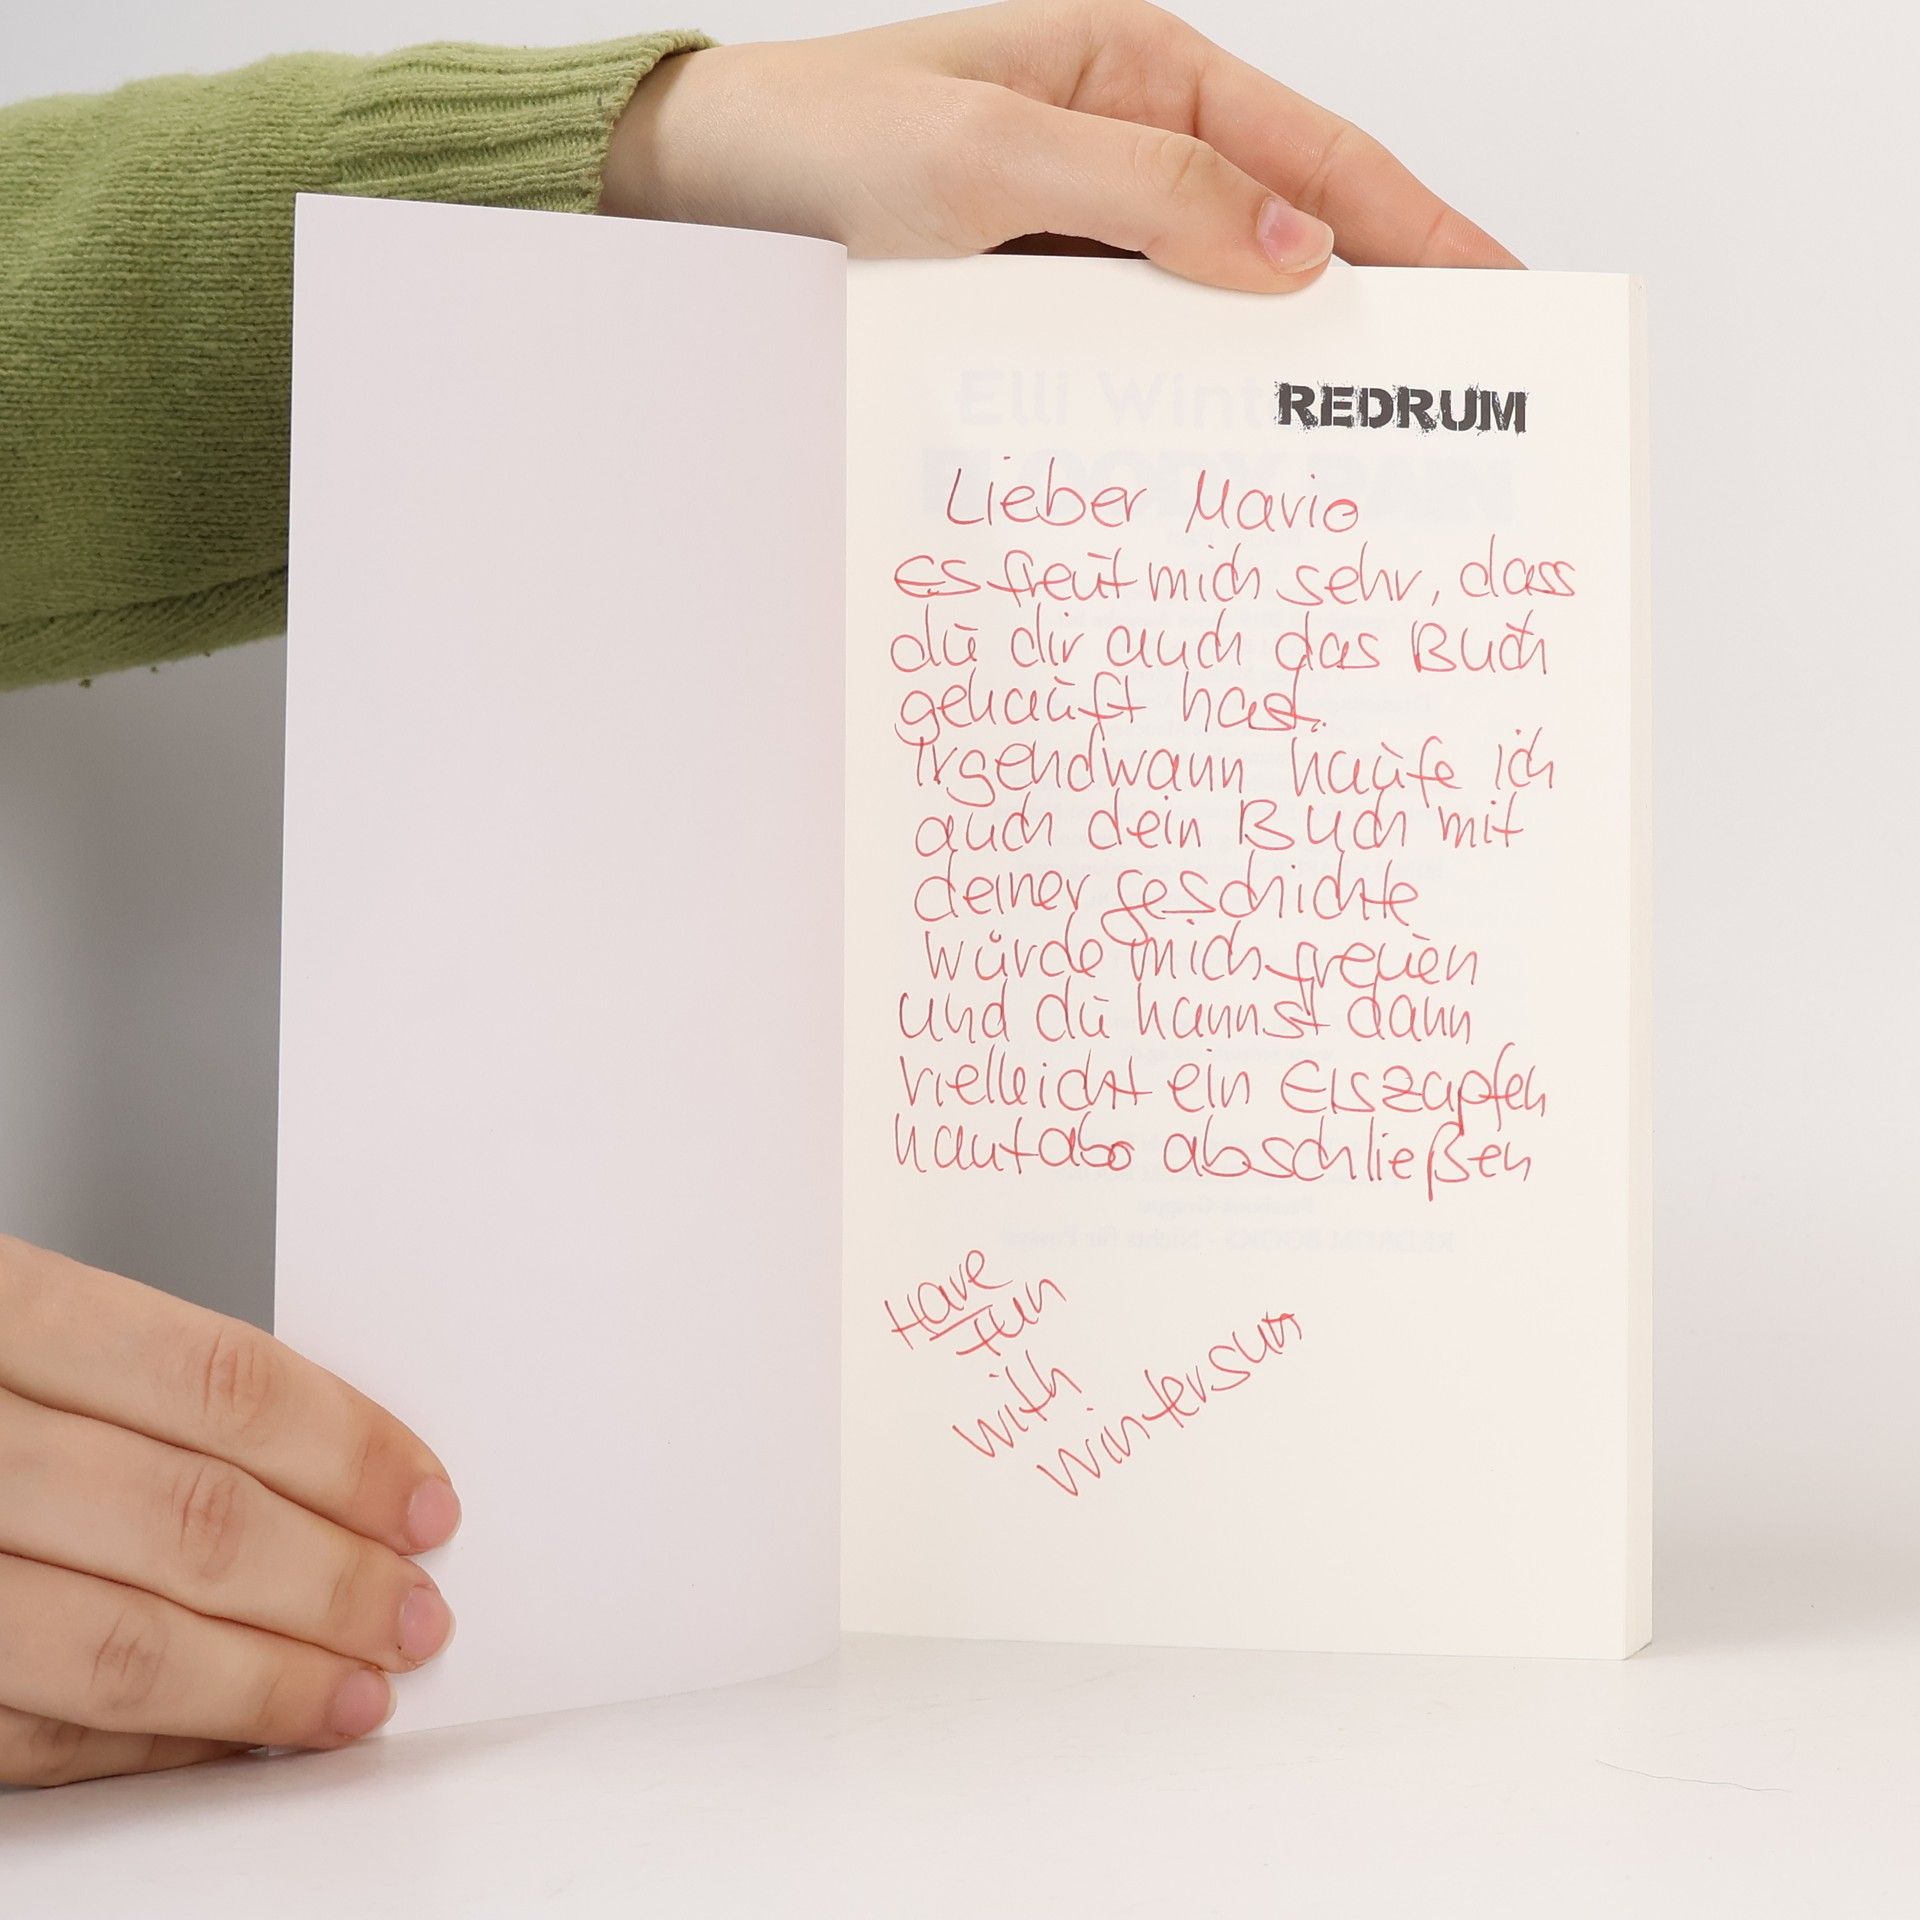 REDRUM
Lieber Mario
es freut mich sehr, dass
du dir auch das Buch
gekauft hast.
Irgendwann kaufe ich
auch dein Buch mit
deiner Geschichte
würde mich freuen
und du kannst dann
vielleicht ein Eiszapfen
kautabo abschließen
Have
fun
with
Wintersun
Elli Wint